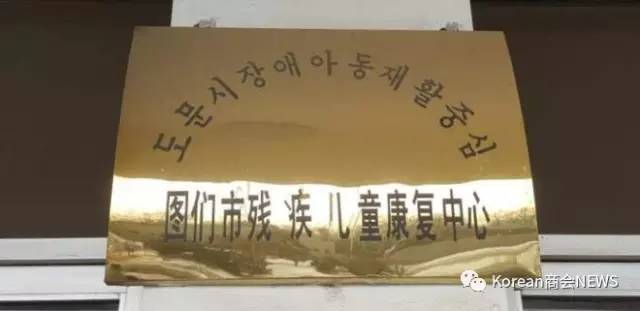 도문시장애아동재활중심
图们市残疾儿童康复中心
Korean商会NEWS